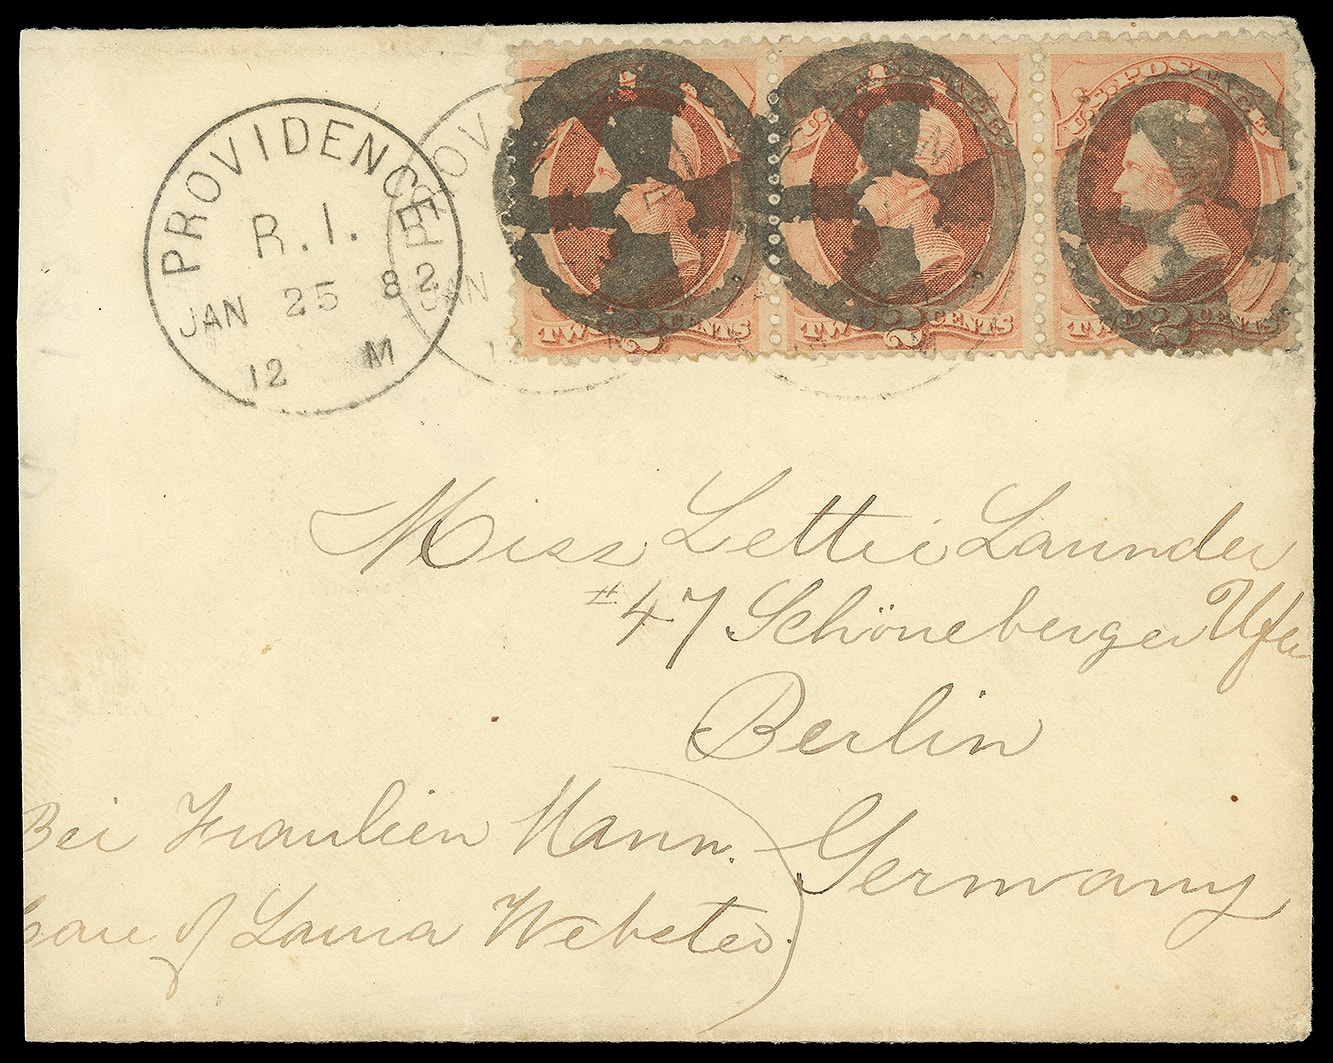 PROVIDENCE
R.I.
JAN 25 82
12 M
JAN
U.S. POSTAGE
TWO 2 CENTS
TWO 2 CENTS
TWO 2 CENTS
Miss Lettie Launder
#47 Schöneberger Ufer
Berlin
Germany
Bei Fraulien Mann.
Care of Laura Webster.